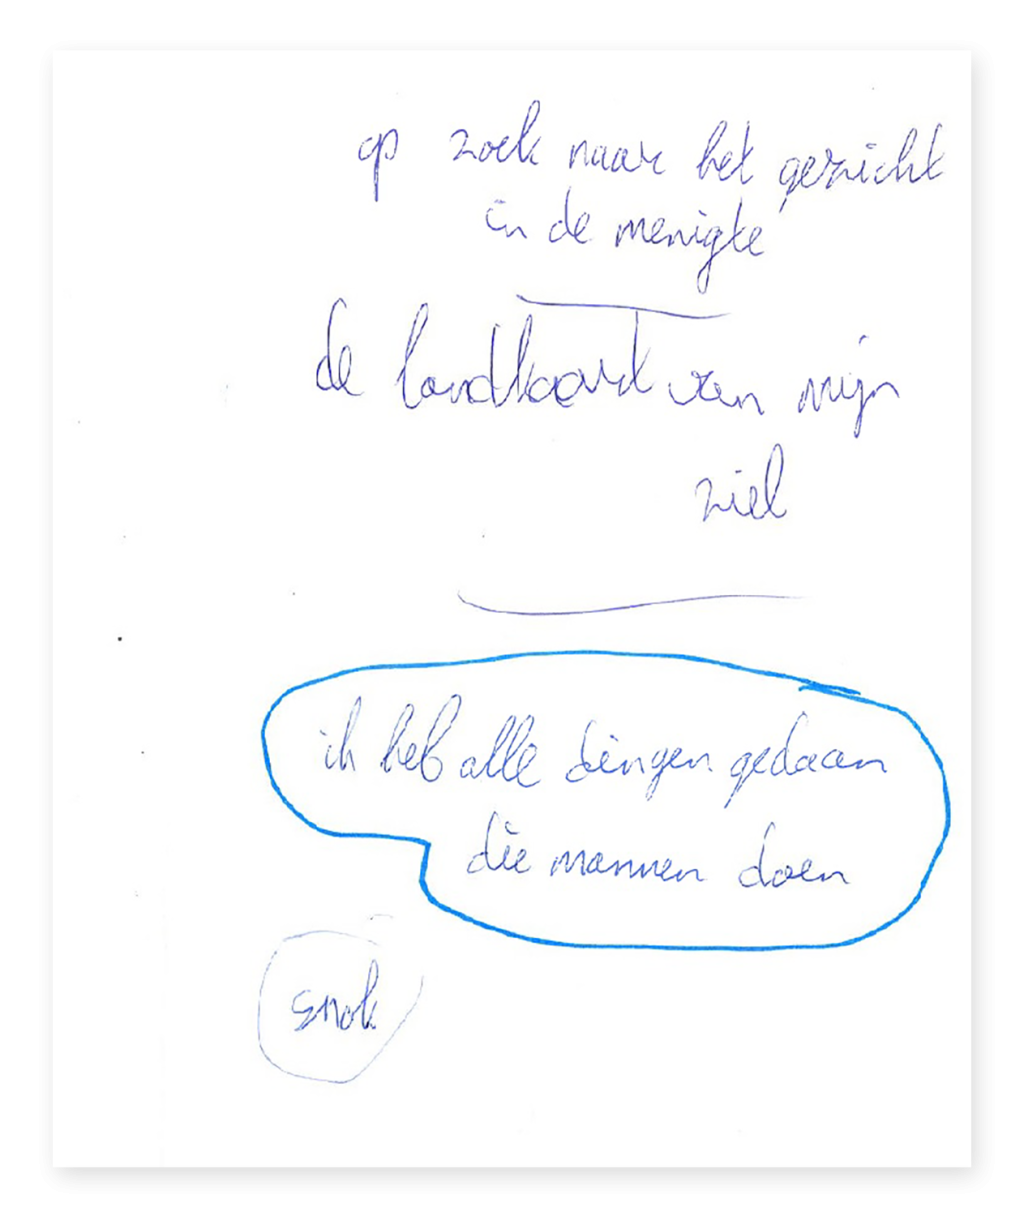 op zoek naar het gezicht
in de menigte
de landkaart van mijn
ziel
ik heb alle dingen gedaan
die mannen doen
snok